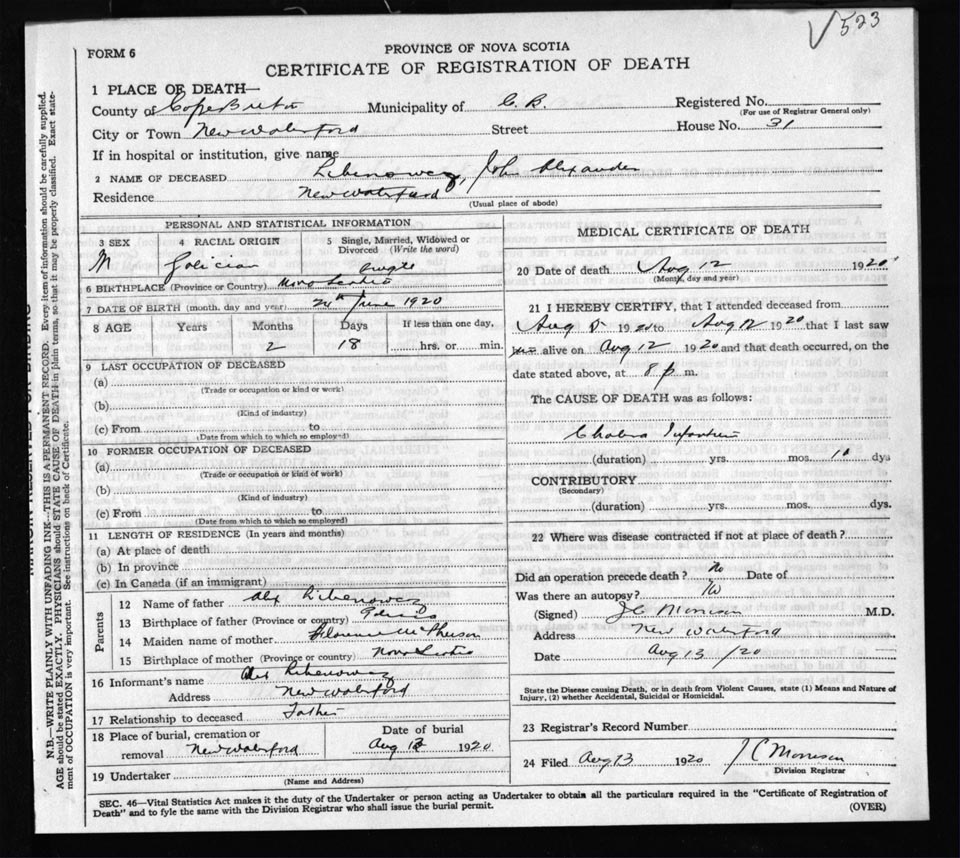 √523
FORM 6
PROVINCE OF NOVA SCOTIA
CERTIFICATE OF REGISTRATION OF DEATH
1 PLACE OF DEATH—
County of Cape Breton Municipality of C. B. Registered No.
(For use of Registrar General only)
City or Town New Waterford Street House No. 31
If in hospital or institution, give name
2 NAME OF DECEASED Libenowez, John Alexander
Residence New Waterford
(Usual place of abode)
PERSONAL AND STATISTICAL INFORMATION
3 SEX 4 RACIAL ORIGIN 5 Single, Married, Widowed or Divorced (Write the word)
M Galician Single
6 BIRTHPLACE (Province or Country) Nova Scotia
7 DATE OF BIRTH (month, day and year) 24th June 1920
8 AGE Years Months Days If less than one day,
2 18 hrs. or min.
9 LAST OCCUPATION OF DECEASED
(a)
(Trade or occupation or kind or work)
(b)
(Kind of industry)
(c) From to
(Date from which to which so employed)
10 FORMER OCCUPATION OF DECEASED
(a)
(Trade or occupation or kind of work)
(b)
(Kind of industry)
(c) From to
(Date from which to which so employed)
11 LENGTH OF RESIDENCE (In years and months)
(a) At place of death
(b) In province
(c) In Canada (if an immigrant)
Parents
12 Name of father Alex Libenowez
13 Birthplace of father (Province or country)
14 Maiden name of mother Florence McPherson
15 Birthplace of mother (Province or country) Nova Scotia
16 Informant's name Alex Libenowez
Address New Waterford
17 Relationship to deceased Father
18 Place of burial, cremation or removal New Waterford Date of burial Aug 1920
19 Undertaker
(Name and Address)
MEDICAL CERTIFICATE OF DEATH
20 Date of death Aug 12 1920
(Month, day and year)
21 I HEREBY CERTIFY, that I attended deceased from
Aug 1920 to Aug 12 1920 that I last saw
alive on Aug 12 1920 and that death occurred, on the
date stated above, at 8 p m.
The CAUSE OF DEATH was as follows:
Cholera Infantum
(duration) yrs. mos. 10 dys
CONTRIBUTORY
(Secondary)
(duration) yrs. mos. dys.
22 Where was disease contracted if not at place of death?
Did an operation precede death? No Date of
Was there an autopsy? No
(Signed) J C Morrison M.D.
Address New Waterford
Date Aug 13 /20
State the Disease causing Death, or in death from Violent Causes, state (1) Means and Nature of
Injury, (2) whether Accidental, Suicidal or Homicidal.
23 Registrar's Record Number
24 Filed Aug 13 1920 J C Morrison
Division Registrar
SEC. 46—Vital Statistics Act makes it the duty of the Undertaker or person acting as Undertaker to obtain all the particulars required in the "Certificate of Registration of
Death" and to fyle the same with the Division Registrar who shall issue the burial permit. (OVER)
MARGIN RESERVED FOR BINDING
N.B.—WRITE PLAINLY WITH UNFADING INK—THIS IS A PERMANENT RECORD. Every item of information should be carefully supplied.
AGE should be stated EXACTLY. PHYSICIANS should STATE CAUSE OF DEATH in plain terms, so that it may be properly classified. Exact state-
ment of OCCUPATION is very important. See instructions on back of Certificate.